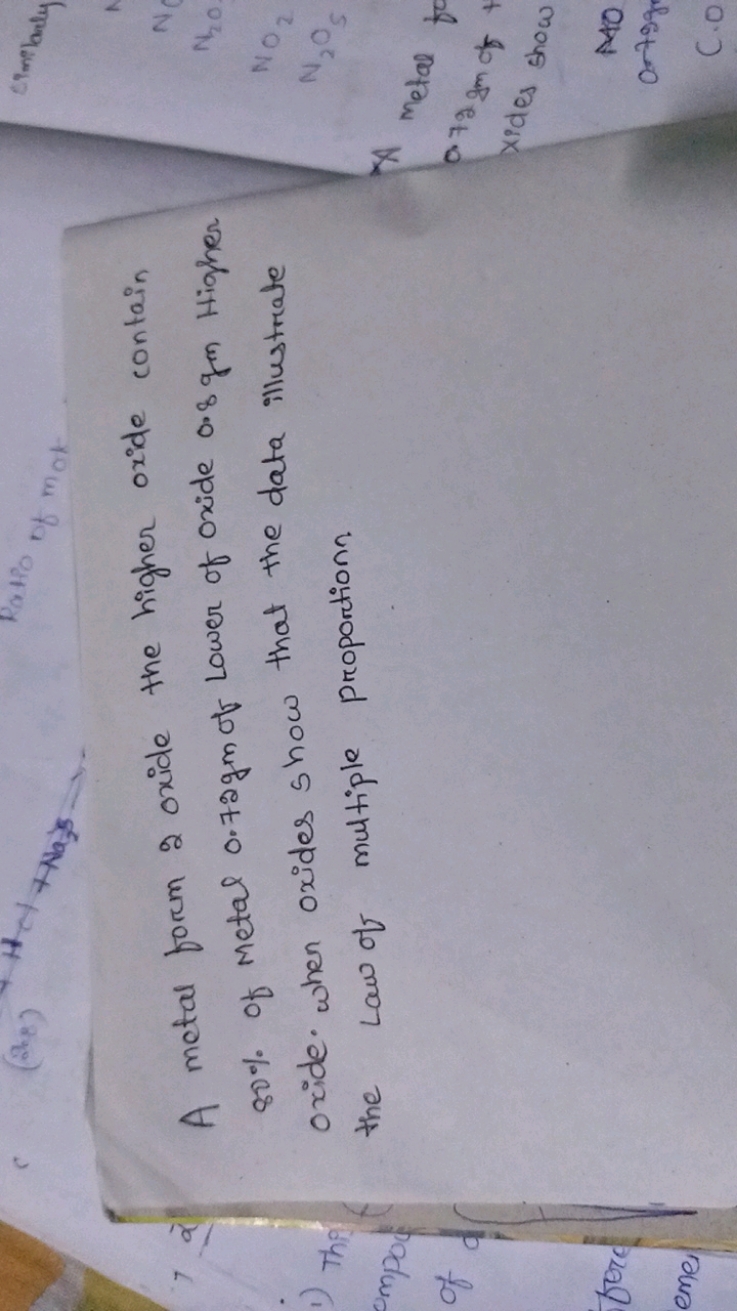 A metal form 2 oxide the higher oxide contain
80% of Metal 0.72gm of Lower of oxide 0.8gm Higher
oxide. when oxides show that the data illustrate
the Law of multiple proportion
similarly
N2O
NO2
N2O5
A metal fo
0.72 gm of
xides show
Ratio of mot
HCl + Na2S